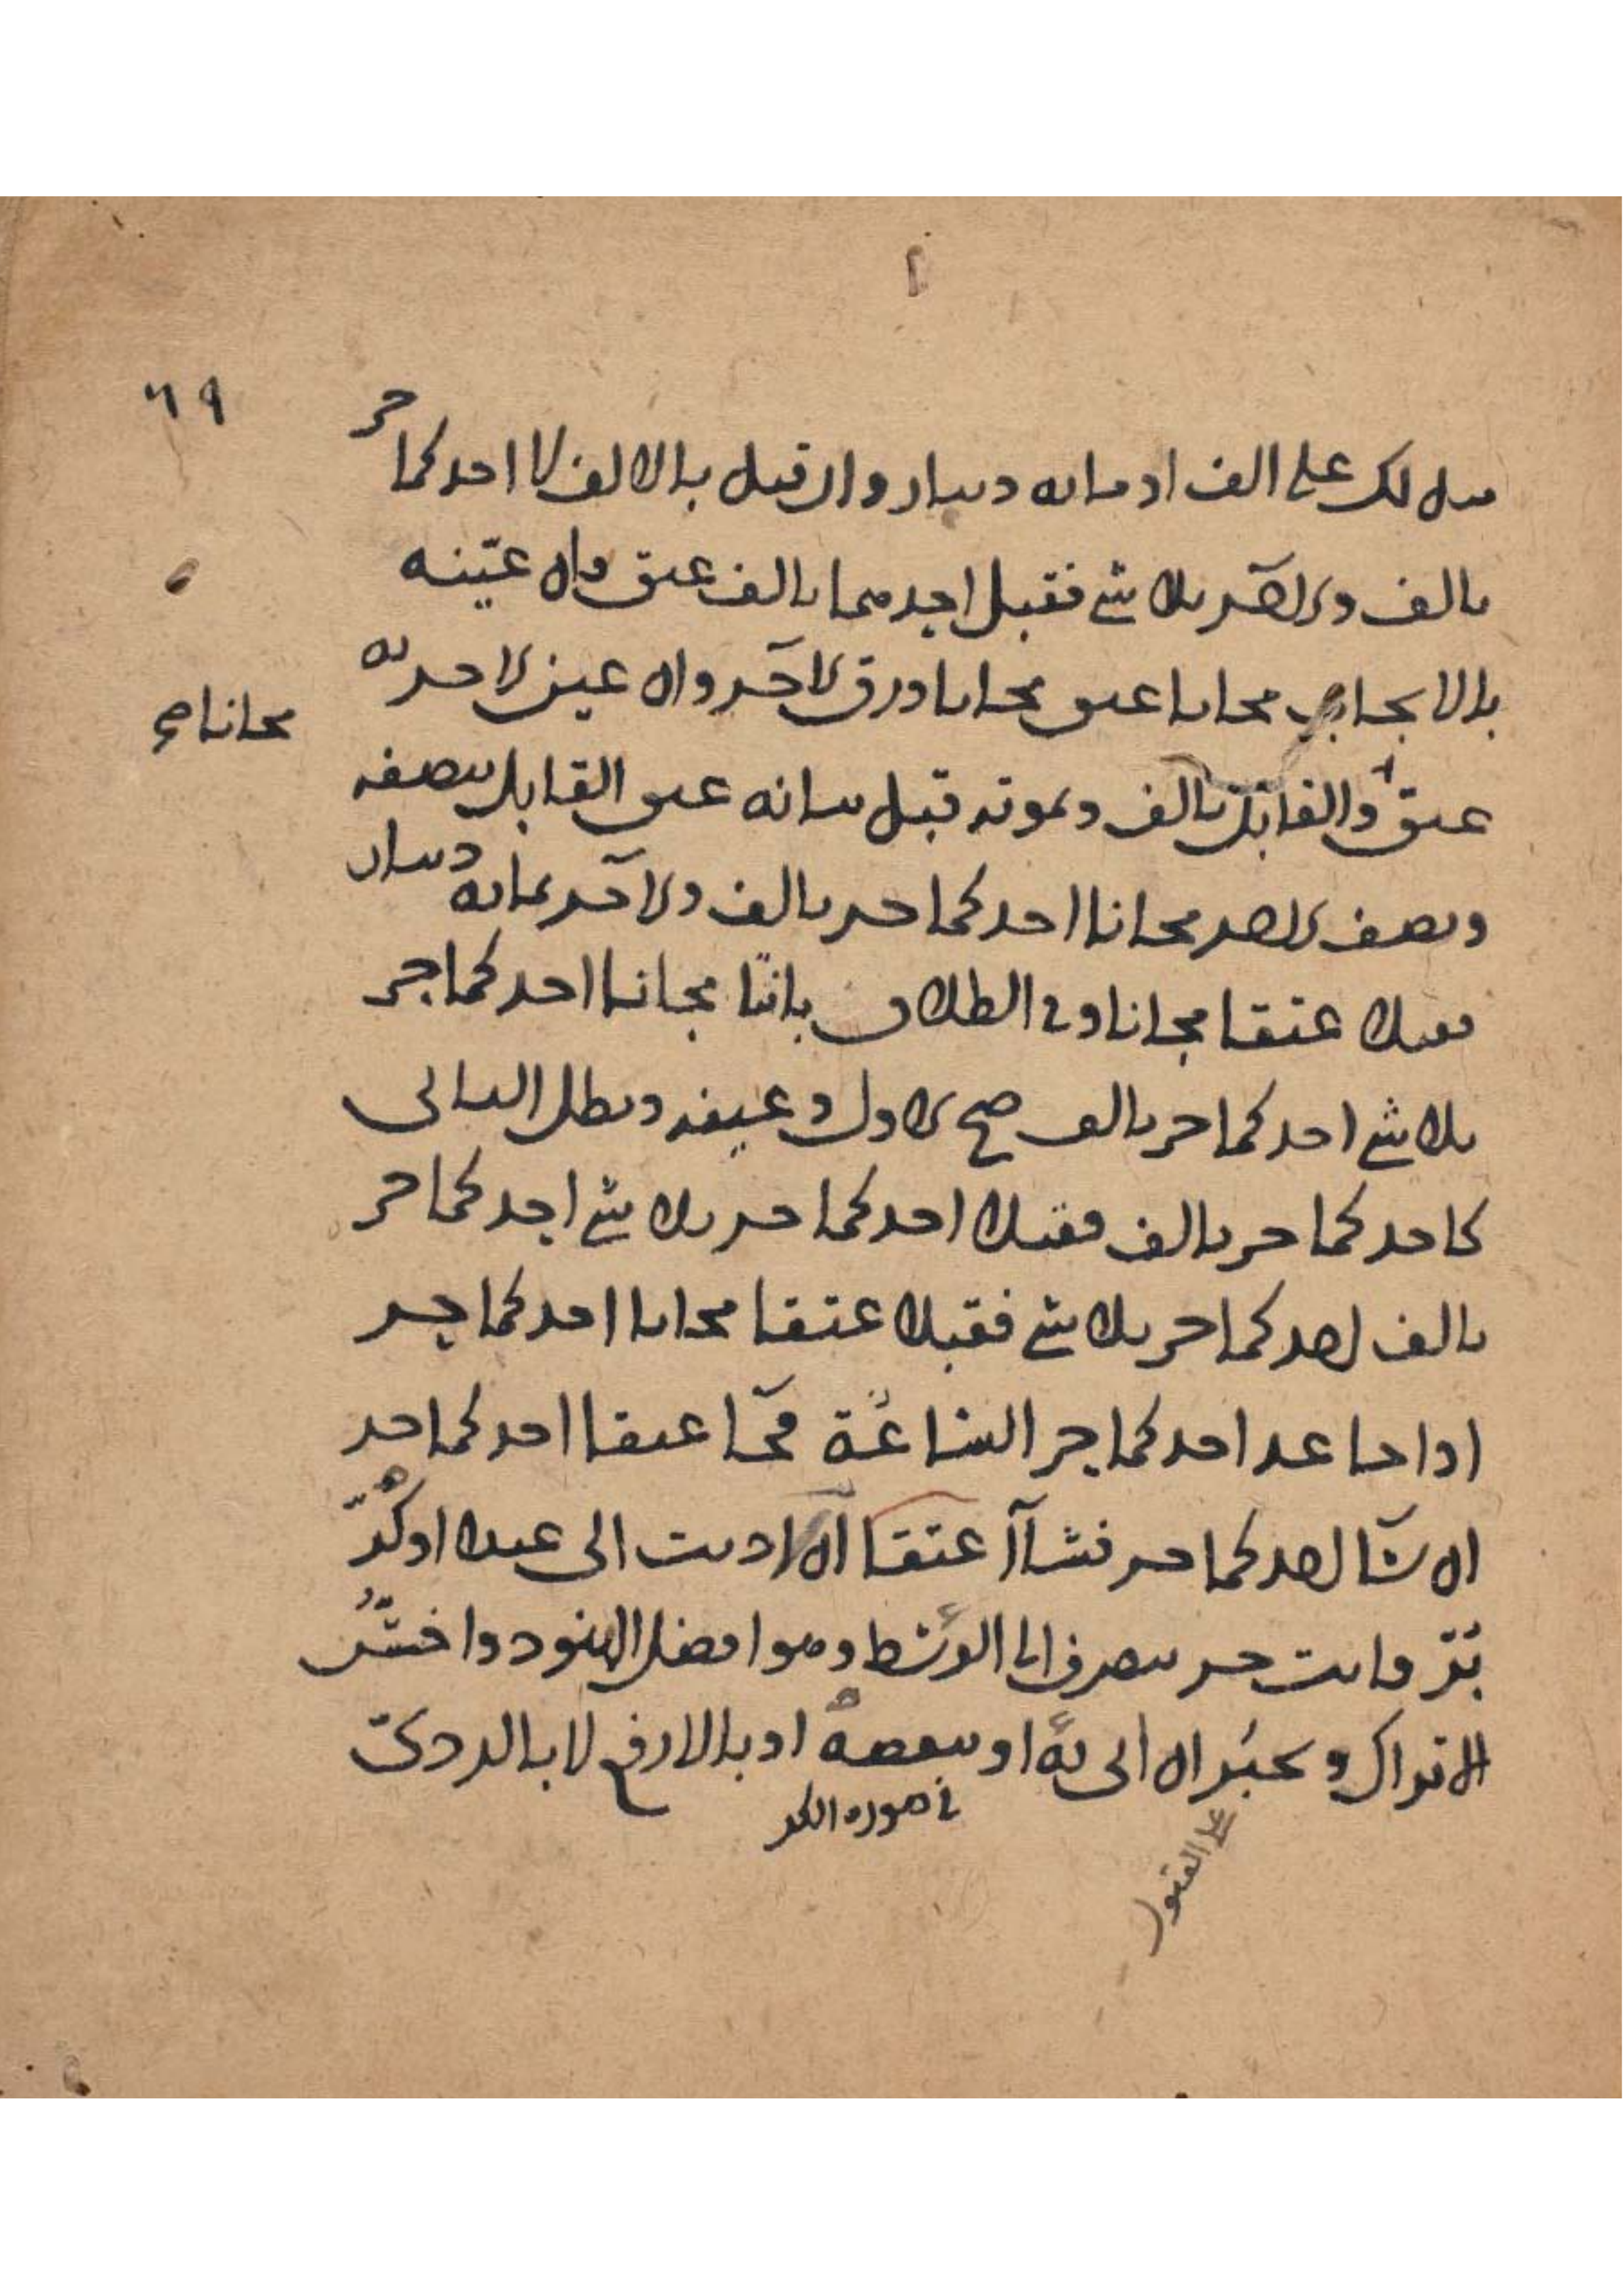 ٦٩
لك على الف او مائه دينار وان قبل بالالف لا احدكما حر
بالف والاخر بلا شي فقبل احدهما بالف عتق وان عينه
بالايجاب مجانا عتق مجانا ورق الاخر وان عين الاخر به
مجانا صح
عتق والقابل بالف وبموته قبل بيانه عتق القابل بنصفه
ونصف الاخر مجانا احدكما حر بالف والاخر بمائه دينار
فقبلا عتقا مجانا وفي الطلاق بانتا مجانا احدكما حر
بلا شي احدكما حر بالف صح الاول وعينه وبطل الثاني
كاحدكما حر بالف فقبلا احدكما حر بلا شي احدكما حر
بالف احدكما حر بلا شي فقبلا عتقا مجانا احدكما حر
اذا جا غد احدكما حر الساعة فجا عتقا احدكما حر
ان شا احدكما حر فشاآ عتقا ان اديت الى عبدا او كر
بر فانت حر ينصرف الى الوسط وهو افضل الهنود واخس
الاتراك ويجبر ان اتى به او ببعضه او بالارفع لا بالردي
في صوره الكر
على القبول